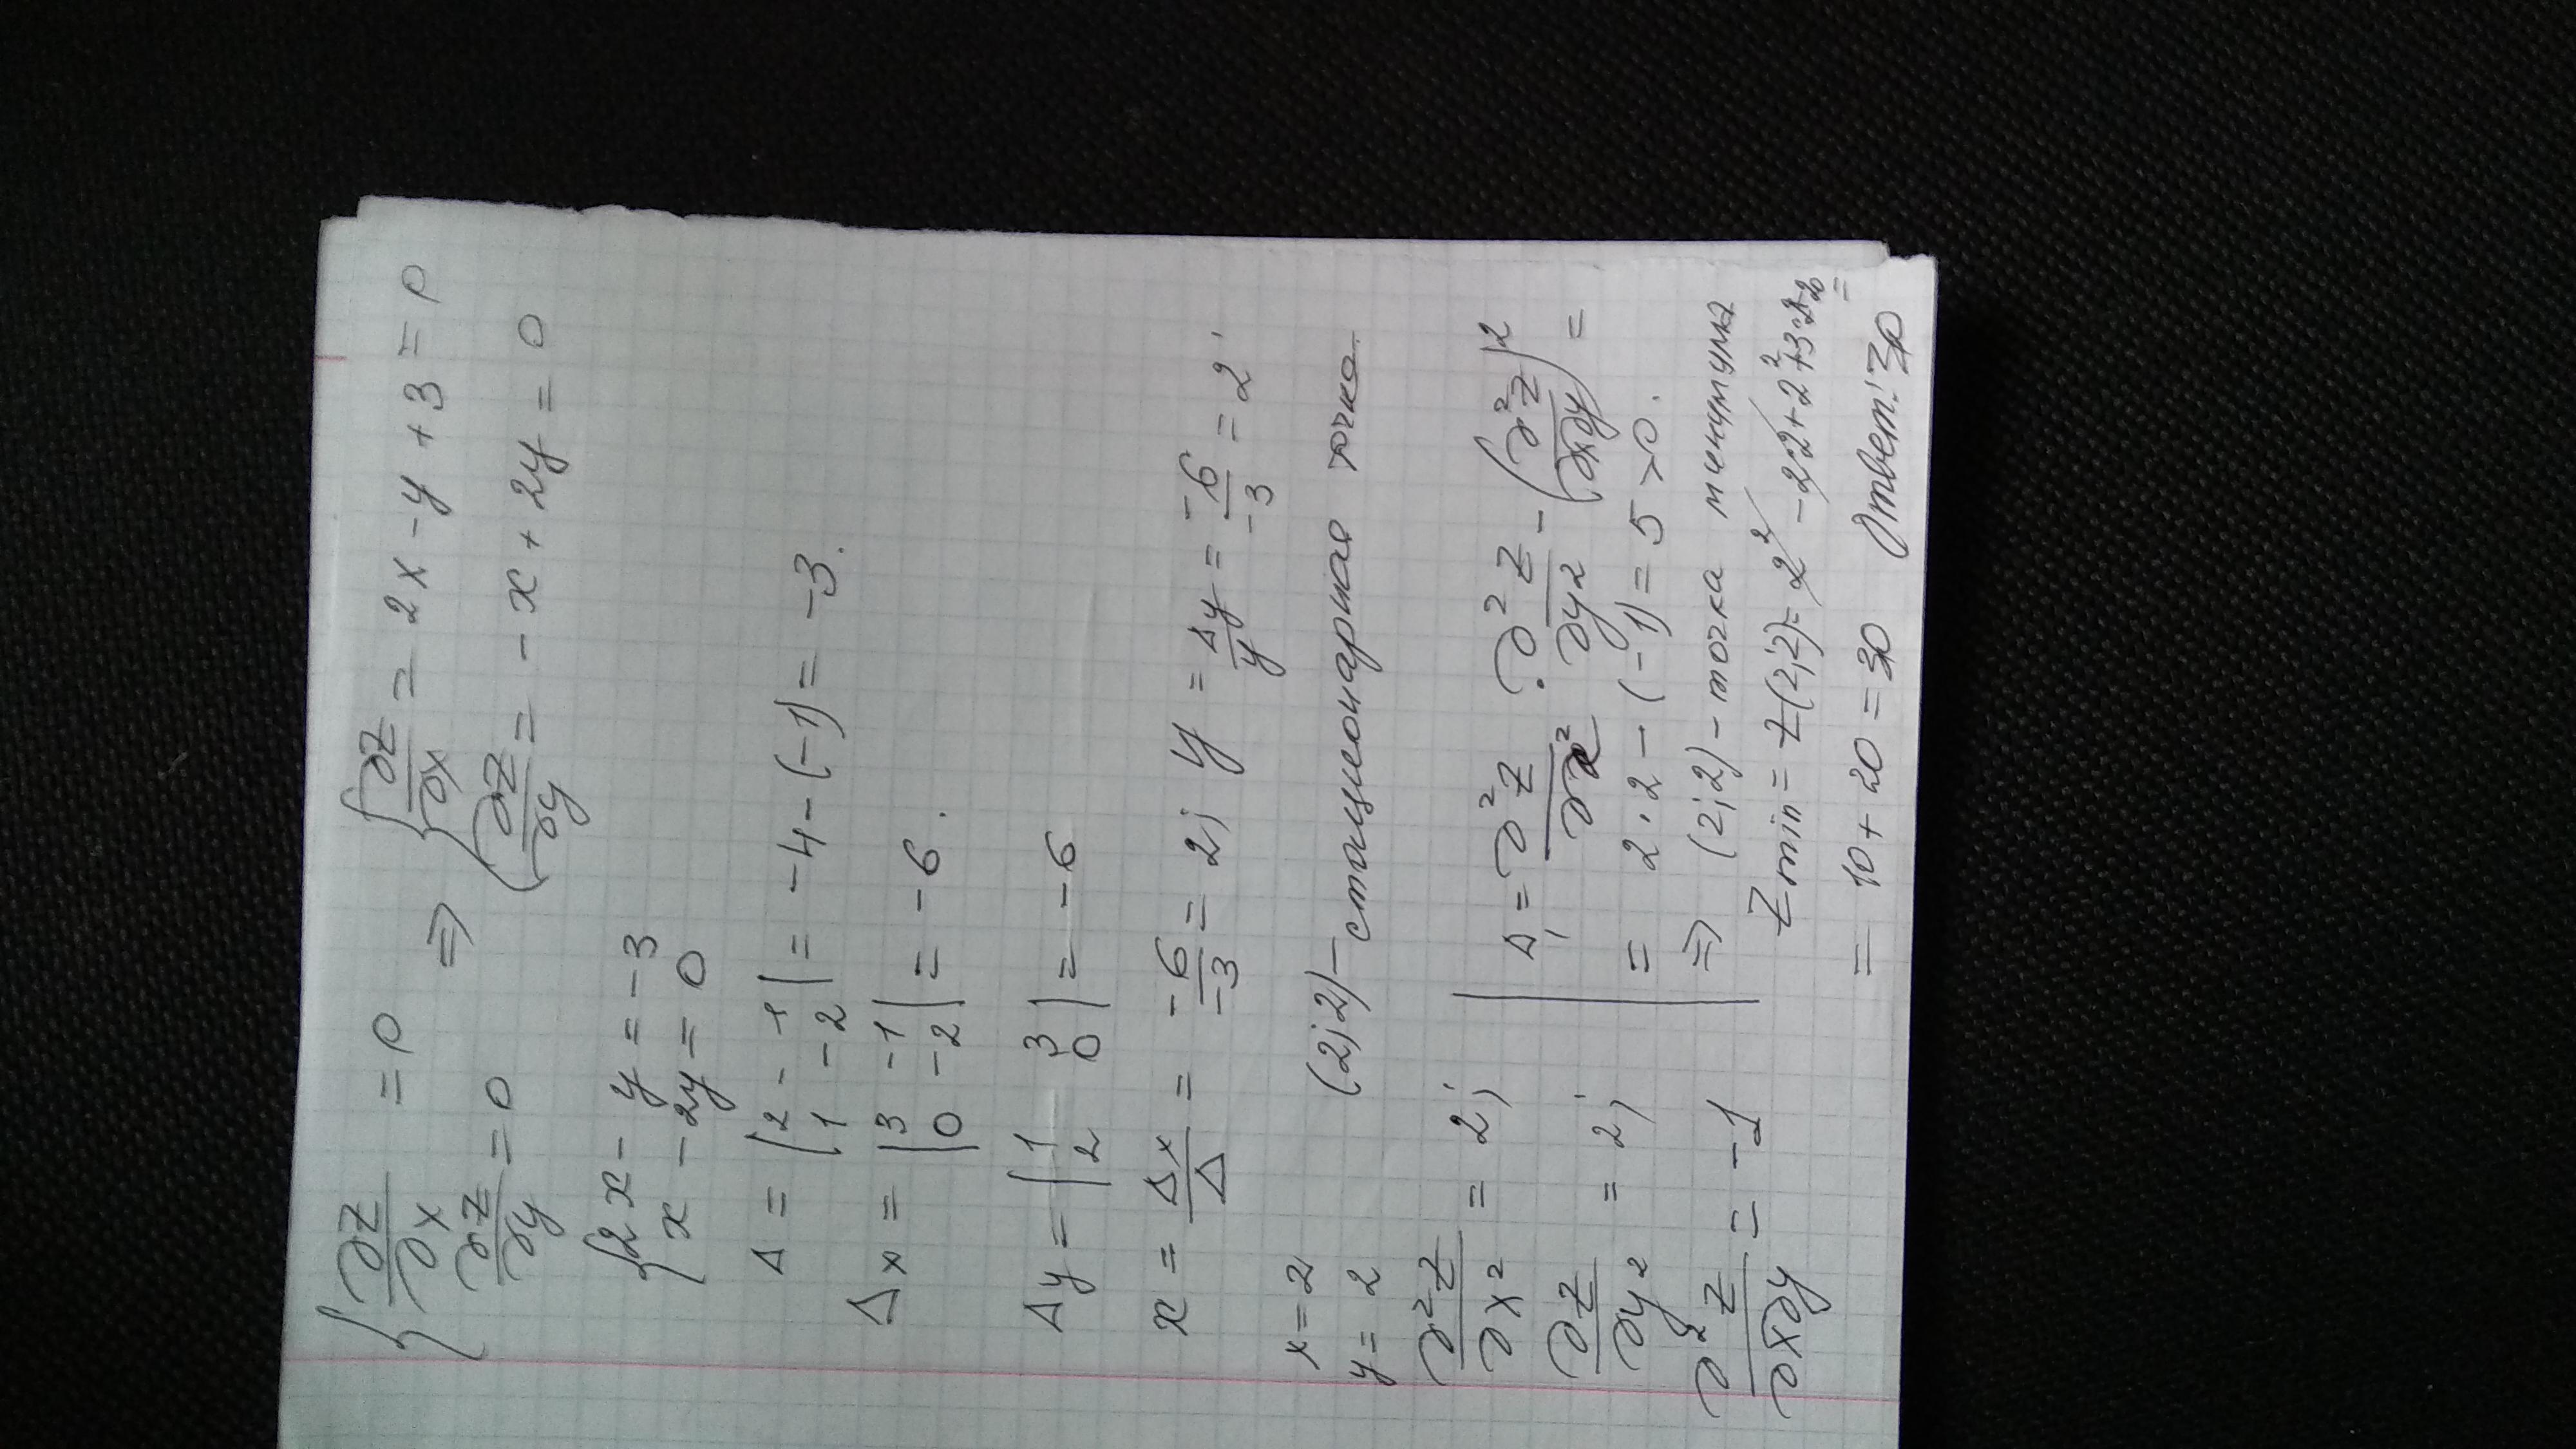 { ∂z/∂x = 0 ⇒ { ∂z/∂x = 2x - y + 3 = 0
∂z/∂y = 0 ∂z/∂y = - x + 2y = 0
{ 2x - y = -3
x - 2y = 0
Δ = |2 -1 1 -2| = -4 - (-1) = -3.
Δx = |3 -1 0 -2| = -6.
Δy = |1 3 2 0| = -6
x = Δx/Δ = -6/-3 = 2; y = Δy/y = -6/-3 = 2;
x = 2
y = 2 (2;2) - стационарная точка
∂²z/∂x² = 2; Δ₁ = ∂²z/∂x² · ∂²z/∂y² - (∂²z/∂x∂y)² =
∂z/∂y² = 2; = 2·2 - (-1) = 5 > 0.
∂²z/∂x∂y = -1 ⇒ (2;2) - точка минимума
Zmin = Z(2;2) = 2² - 2·2 + 2² + 3·2
= 10 + 20 = 30 Ответ: 30